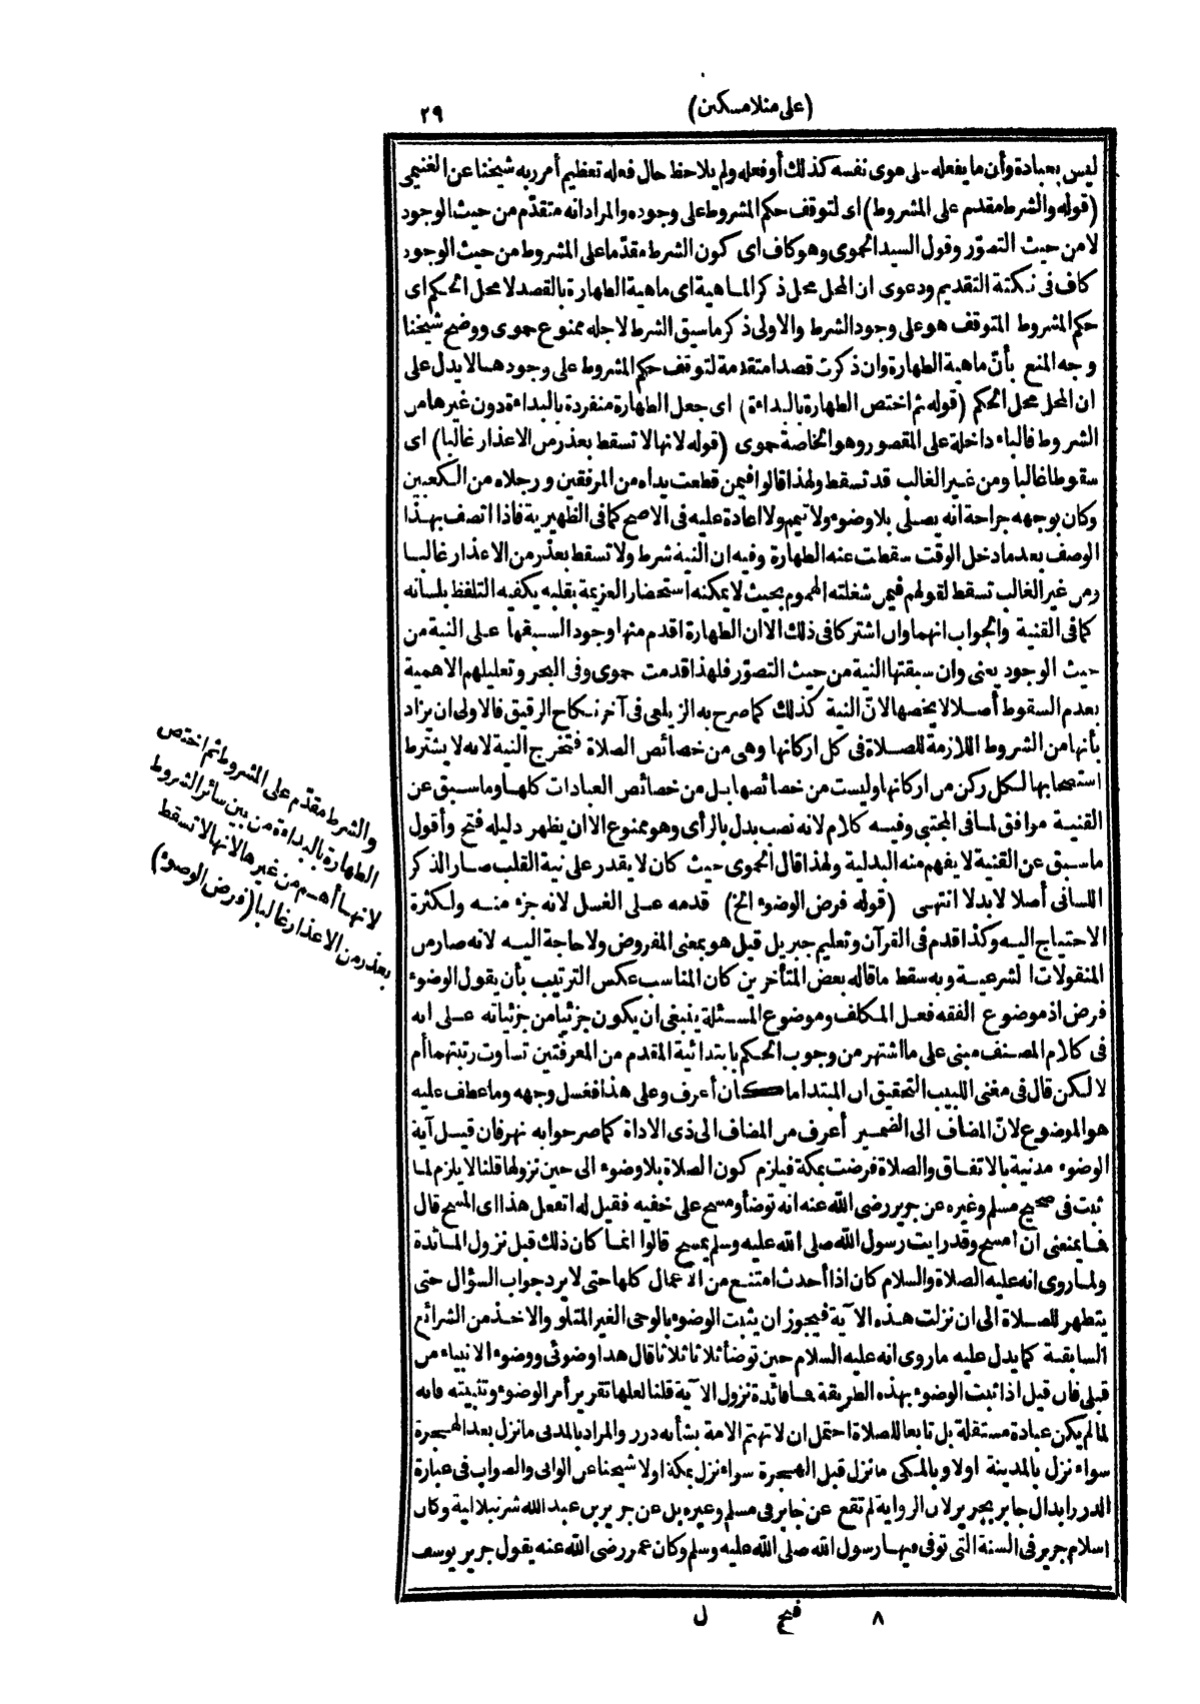 (على منلا مسكين)
٢٩
ليس بعبادة وأن ما يفعله على هوى نفسه كذلك أو فعله ولم يلاحظ حال فعله تعظيم أمر ربه شيخنا عن الغنيمى
(قوله والشرط مقدم على المشروط) اى لتوقف حكم المشروط على وجوده والمراد انه متقدّم من حيث الوجود
لا من حيث التصوّر وقول السيد الحموى وهو كاف اى كون الشرط مقدّما على المشروط من حيث الوجود
كاف فى نكتة التقديم ودعوى ان المحل محل ذكر الماهية اى ماهية الطهارة بالقصد لا محل الحكم اى
حكم المشروط المتوقف هو على وجود الشرط والاولى ذكر ما سيق الشرط لاجله ممنوع حموى ووضح شيخنا
وجه المنع بأنّ ماهية الطهارة وان ذكرت قصدا متقدمة لتوقف حكم المشروط على وجودها لا يدل على
ان المحل محل الحكم (قوله ثم اختص الطهارة بالبداءة) اى جعل الطهارة منفردة بالبداءة دون غيرها من
الشروط فالباء داخلة على المقصور وهو الخاصة حموى (قوله لانها لا تسقط بعذر من الاعذار غالبا) اى
سقوطا غالبا ومن غير الغالب قد تسقط ولهذا قالوا فيمن قطعت يداه من المرفقين ورجلاه من الكعبين
وكان بوجهه جراحة انه يصلى بلا وضوء ولا تيمم ولا اعادة عليه فى الاصح كما فى الظهيرية فاذا اتصف بهذا
الوصف بعد ما دخل الوقت سقطت عنه الطهارة وفيه ان النية شرط ولا تسقط بعذر من الاعذار غالبا
ومن غير الغالب تسقط لقولهم فيمن شغلته الهموم بحيث لا يمكنه استحضار العزيمة بقلبه يكفيه التلفظ بلسانه
كما فى القنية والجواب انهما وان اشتركا فى ذلك الا ان الطهارة اقدم منها وجود السبقها على النية من
حيث الوجود يعنى وان سبقتها النية من حيث التصوّر فلهذا قدمت حموى وفى البحر وتعليلهم الاهمية
بعدم السقوط أصلا لا يخصها لانّ النية كذلك كما صرح به الزيلعى فى آخر نكاح الرقيق فالاولى ان يزاد
بأنها من الشروط اللازمة للصلاة فى كل اركانها وهى من خصائص الصلاة فتخرج النية لانه لا يشترط
استصحابها لكل ركن من اركانها وليست من خصائصها بل من خصائص العبادات كلها وما سبق عن
القنية موافق لما فى المجتبى وفيه كلام لانه نصب بدل بالرأى وهو ممنوع الا ان يظهر دليله فتح وأقول
ما سبق عن القنية لا يفهم منه البدلية ولهذا قال الحموى حيث كان لا يقدر على نية القلب صار الذكر
اللسانى أصلا لا بدلا انتهى (قوله فرض الوضوء الخ) قدمه على الغسل لانه جزء منه ولكثرة
الاحتياج اليه وكذا قدم فى القرآن وتعليم جبريل قيل هو بمعنى المفروض ولا حاجة اليه لانه صار من
المنقولات الشرعية وبه سقط ما قاله بعض المتأخرين كان المناسب عكس الترتيب بأن يقول الوضوء
فرض اذ موضوع الفقه فعل المكلف وموضوع المسئلة ينبغى ان يكون جزئيا من جزئياته على انه
فى كلام المصنف مبنى على ما اشتهر من وجوب الحكم بابتدائية المقدم من المعرفتين تساوت رتبتهما أم
لا لكن قال فى مغنى اللبيب التحقيق ان المبتدا ما كان أعرف وعلى هذا فغسل وجهه وما عطف عليه
هو الموضوع لانّ المضاف الى الضمير أعرف من المضاف الى ذى الاداة كما صرحوا به نهر فان قيل آية
الوضوء مدنية بالاتفاق والصلاة فرضت بمكة فيلزم كون الصلاة بلا وضوء الى حين نزولها قلنا لا يلزم لما
ثبت فى صحيح مسلم وغيره عن جرير رضى الله عنه انه توضأ ومسح على خفيه فقيل له اتفعل هذا اى المسح قال
فما يمنعنى ان امسح وقد رايت رسول الله صلى الله عليه وسلم يمسح قالوا انما كان ذلك قبل نزول المائدة
ولما روى انه عليه الصلاة والسلام كان اذا أحدث امتنع من الاعمال كلها حتى لا يرد جواب السؤال حتى
يتطهر للصلاة الى ان نزلت هذه الآية فيجوز ان يثبت الوضوء بالوحى الغير المتلو والاخذ من الشرائع
السابقة كما يدل عليه ما روى انه عليه السلام حين توضأ ثلاثا ثلاثا قال هذا وضوئى ووضوء الانبياء من
قبلى فان قيل اذا ثبت الوضوء بهذه الطريقة فما فائدة نزول الآية قلنا لعلها تقرير أمر الوضوء وتثبيته فانه
لما لم يكن عبادة مستقلة بل تابعا للصلاة احتمل ان لا تهتم الامة بشأنه درر والمراد بالمدنى ما نزل بعد الهجرة
سواء نزل بالمدينة اولا وبالمكى ما نزل قبل الهجرة سواء نزل بمكة اولا شيخنا عن الوانى والصواب فى عبارة
الدرر ابدال جابر بجرير لان الرواية لم تقع عن جابر فى مسلم وغيره بل عن جرير بن عبد الله شرنبلالية وكان
اسلام جرير فى السنة التى توفى فيها رسول الله صلى الله عليه وسلم وكان عمر رضى الله عنه يقول جرير يوسف
والشرط مقدّم على المشروط ثم اختص
الطهارة بالبداءة من بين سائر الشروط
لانها أهم من غيرها لانها لا تسقط
بعذر من الاعذار غالبا (فرض الوضوء)
٨ فتح ل